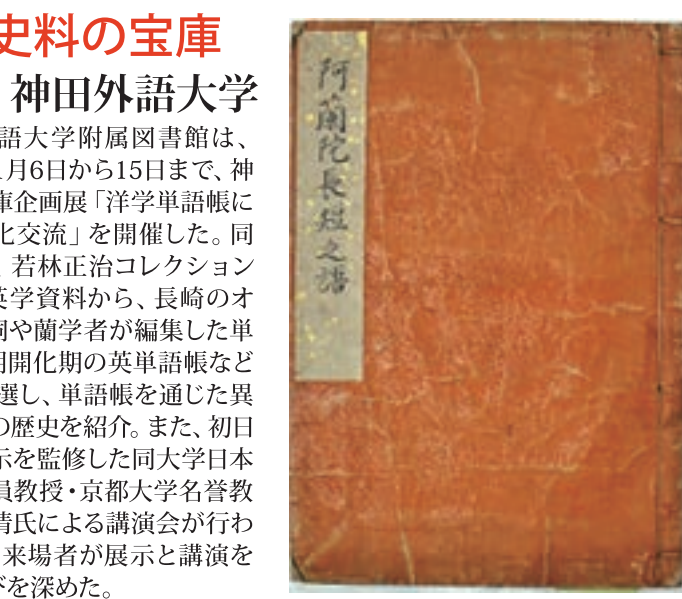 史料の宝庫
神田外語大学
語大学附属図書館は、
月6日から15日まで、神
庫企画展「洋学単語帳に
化交流」を開催した。同
、若林正治コレクション
英学資料から、長崎のオ
詞や蘭学者が編集した単
明開化期の英単語帳など
選し、単語帳を通じた異
の歴史を紹介。また、初日
示を監修した同大学日本
員教授・京都大学名誉教
清氏による講演会が行わ
来場者が展示と講演を
びを深めた。
阿蘭陀長短之語